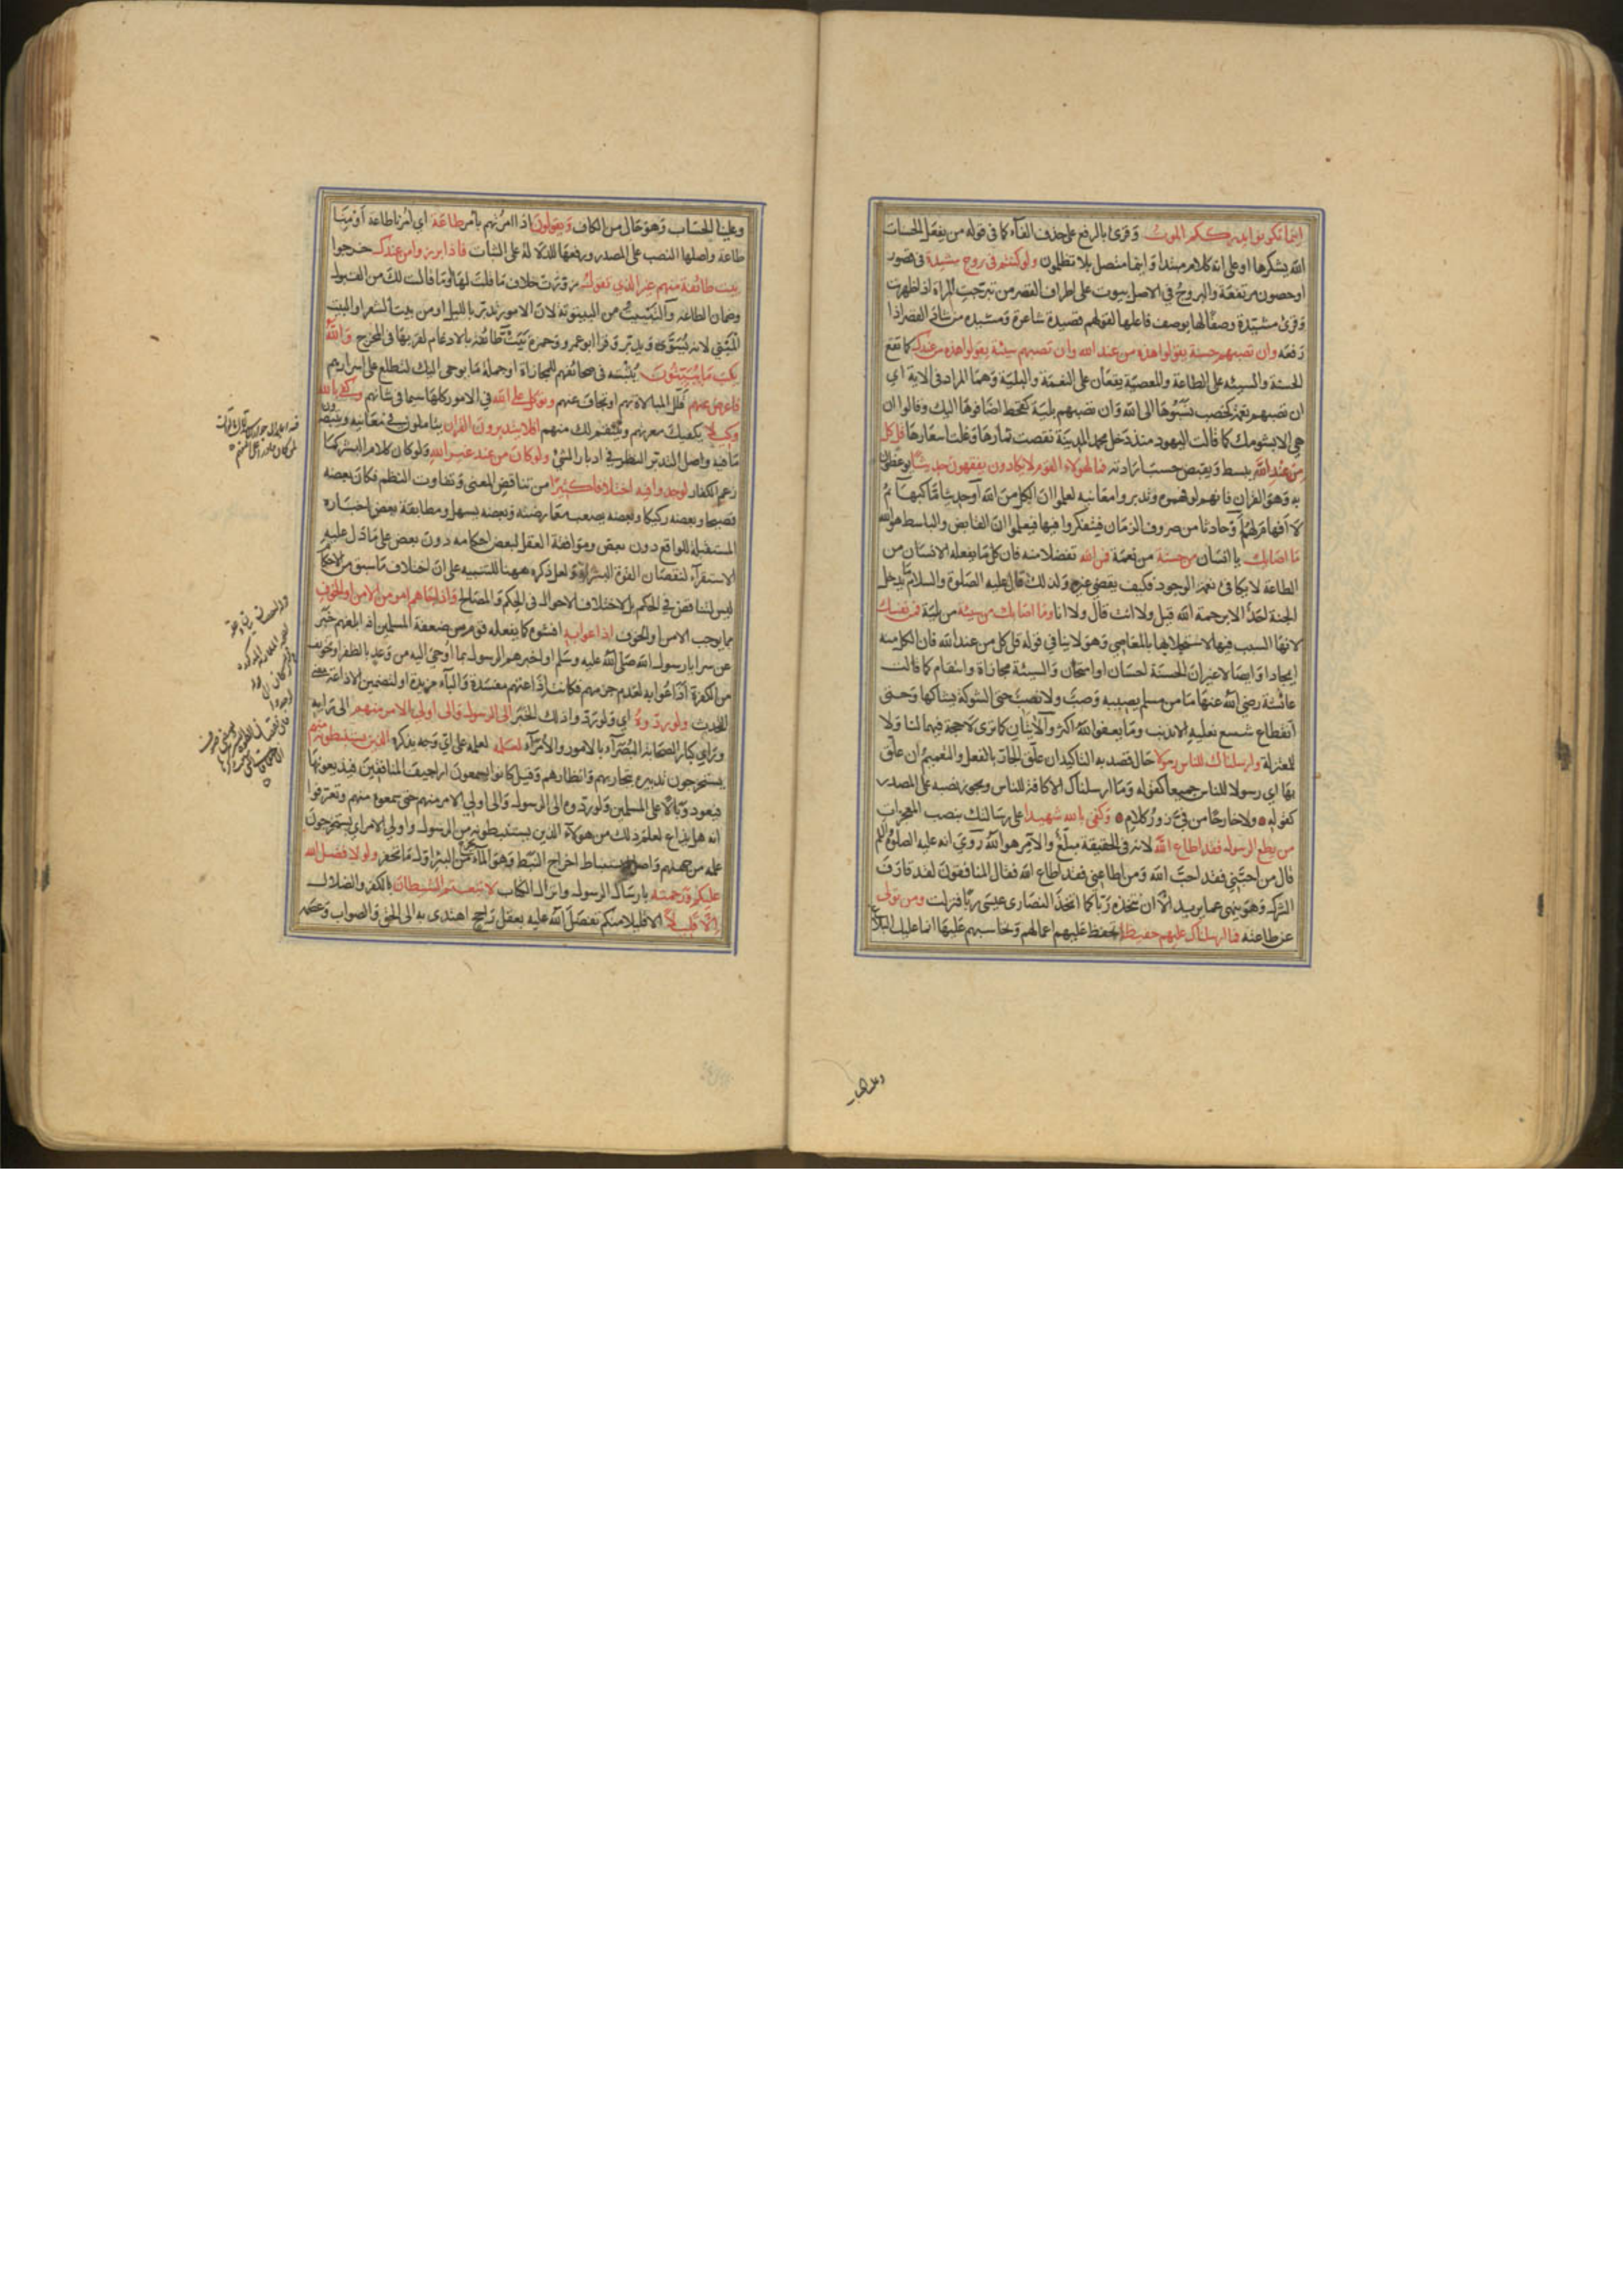 اينما تكونوا يدرككم الموت وقرئ بالرفع على حذف الفاء كما فى قوله من يفعل الحسنات
الله يشكرها او على انه كلام مبتدأ واينما متصل بلا تظلمون ولو كنتم فى بروج مشيدة فى قصور
او حصون مرتفعة والبروج في الاصل بيوت على اطراف القصر من تبرجت المراة اذا ظهرت
وقرئ مشيدة وصفا لها بوصف فاعلها لقولهم قصيدة شاعرة ومشيده من شاد القصر اذا
رفعه وان تصبهم حسنة يقولوا هذه من عند الله وان تصبهم سيئة يقولوا هذه من عندك كما تقع
الحسنة والسيئه على الطاعة والمعصية يقعان على النعمة والبلية وهما المراد فى الاية اي
ان تصبهم نعمة كخصب نسبوها الى الله وان تصبهم بلية كقحط اضافوها اليك وقالوا ان
هي الا بشومك كما قالت اليهود منذ دخل محمد المدينة نقصت ثمارها وغلت اسعارها قل كل
من عند الله يبسط ويقبض حسب ارادته فمال هولاء القوم لا يكادون يفقهون حديثا يوعظون
به وهو القران فانهم لو فهموه وتدبروا معانيه لعلموا ان الكل من الله او حديثا ما كبهائم
لا افهام لهم او حادثا من صروف الزمان فيتفكروا فيها فيعلموا ان القابض والباسط هو الله
ما اصابك يا انسان من حسنة من نعمة فمن الله تفضلا منه فان كل ما يفعله الانسان من
الطاعة لا يكافئ نعمة الوجود فكيف يقتضي غيره ولذلك قال عليه الصلوة والسلام ما يدخل
الجنة احد الا برحمة الله قيل ولا انت قال ولا انا وما اصابك من سيئة من بلية فمن نفسك
لانها السبب فيها لاستجلابها بالمعاصي وهو لا ينافي قوله قل كل من عند الله فان الكل منه
ايجادا وايصالا غير ان الحسنة احسان او امتحان والسيئة مجازاة وانتقام كما قالت
عائشة رضي الله عنها ما من مسلم يصيبه وصب ولا نصب حتى الشوكة يشاكها وحتى
انقطاع شسع نعليه الا بذنب وما يعفو الله اكثر والآيتان كما ترى لا حجة فيهما لنا ولا
للمعتزلة وارسلناك للناس رسولا حال قصد به التاكيد ان علق الجار بالفعل والتعميم ان علق
بها اي رسولا للناس جميعا كقوله وما ارسلناك الا كافة للناس ويجوز نصبه على المصدر
كقوله ولا خارجا من في زور كلام وكفى بالله شهيدا على رسالتك بنصب المعجزات
من يطع الرسول فقد اطاع الله لانه فى الحقيقة مبلغ والآمر هو الله روي انه عليه الصلوة والسلم
قال من احبني فقد احب الله ومن اطاعني فقد اطاع الله فقال المنافقون لقد قارف
الشرك وهو ينهى عنه ما يريد الا ان نتخذه ربا كما اتخذ النصارى عيسى ربا فنزلت ومن تولى
عن طاعته فما ارسلناك عليهم حفيظا تحفظ عليهم اعمالهم وتحاسبهم عليها انما عليك البلاغ
وعلينا الحساب وهو حال من الكاف ويقولون اذا امرتهم بامر طاعة اي امرنا طاعة او منا
طاعة واصلها النصب على المصدر ورفعها للدلالة على الثبات فاذا برزوا من عندك خرجوا
بيت طائفة منهم غير الذي تقول زورت خلاف ما قلت لها او ما قالت لك من القبول
وضمان الطاعة والتبييت من البيتوتة لان الامور تدبر بالليل او من بيت الشعر او البيت
المبني لانه يسوى ويدبر وقرا ابو عمرو وحمزة بيت طائفة بالادغام لقربهما فى المخرج والله
يكتب ما يبيتون يثبته فى صحائفهم للمجازاة او جملة ما يوحى اليك لتطلع على اسرارهم
فاعرض عنهم قلل المبالاة بهم او تجاف عنهم وتوكل على الله في الامور كلها سيما فى شانهم وكفى بالله
وكيلا يكفيك معرتهم وينتقم لك منهم افلا يتدبرون القران يتاملون في معانيه ويتبصرون
ما فيه واصل التدبر النظر في ادبار الشئ ولو كان من عند غير الله ولو كان كلام البشر كما
زعم الكفار لوجدوا فيه اختلافا كثيرا من تناقض المعنى وتفاوت النظم فكان بعضه
فصيحا وبعضه ركيكا وبعضه يصعب معارضته وبعضه يسهل ومطابقة بعض اخباره
المستقبلة للواقع دون بعض وموافقة العقل لبعض احكامه دون بعض على ما دل عليه
الاستقراء لنقصان القوة البشرية ولعل ذكره ههنا للتنبيه على ان اختلاف ما سبق من الاحكام
ليس لتناقض في الحكم بل لاختلاف الاحوال فى الحكم والمصالح واذا جاءهم امر من الامن او الخوف
مما يوجب الامن او الخوف اذاعوا به افشوه كما يفعله قوم من ضعفة المسلمين اذا بلغهم خبر
عن سرايا رسول الله صلى الله عليه وسلم او اخبرهم الرسول بما اوحي اليه من وعد بالظفر او تخويف
من الكفرة اذاعوا به لعدم جزمهم فكانت اذاعتهم مفسدة والباء مزيدة او لتضمين الاذاعة معنى
التحدث ولو ردوه اي ولو رد واذلك الخبر الى الرسول والى اولي الامر منهم الى رايه
وراي كبار الصحابة البصراء بالامور والامراء لعلمه لعلمه على اي وجه يذكره الذين يستنبطونه منهم
يستخرجون تدبيره بتجاربهم وانظارهم وقيل كانوا يسمعون اراجيف المنافقين فيذيعونها
فيعود وبالا على المسلمين ولو ردوه الى الرسول والى اولي الامر منهم حتى سمعوه منهم وتعرفوا
انه هل يذاع لعلم ذلك من هولاء الذين يستنبطونه من الرسول واولي الامر اي يستخرجون
علمه من جهتهم واصل الاستنباط اخراج النبط وهو الماء يخرج من البئر اول ما تحفر ولولا فضل الله
عليكم ورحمته بارسال الرسول وانزال الكتاب لاتبعتم الشيطان بالكفر والضلال
الا قليلا الا قليلا منكم تفضل الله عليه بعقل راجح اهتدى به الى الحق والصواب وعصمه